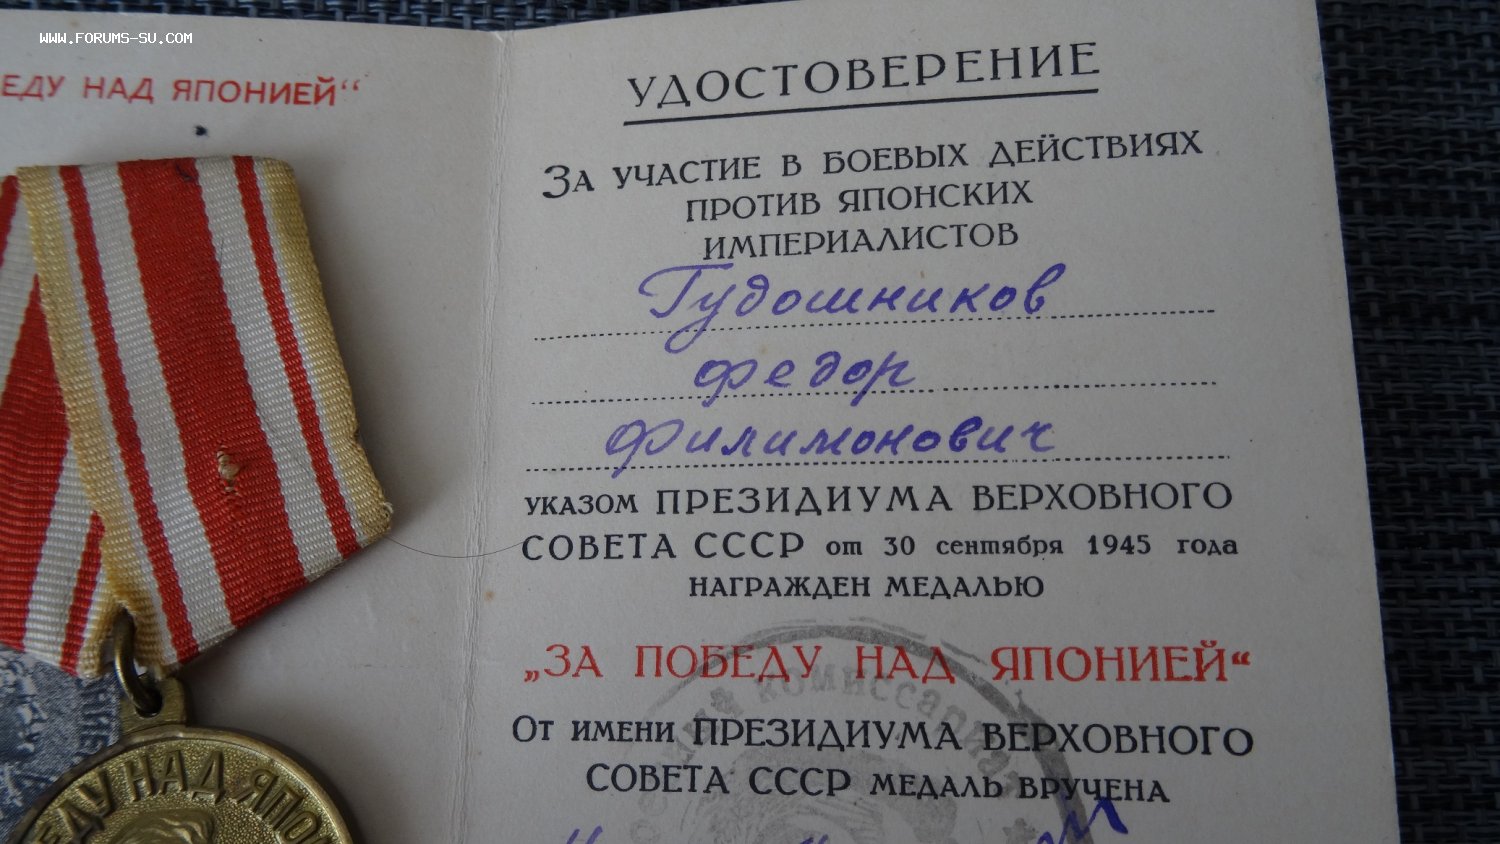 WWW.FORUMS-SU.COM
ЕДУ НАД ЯПОНИЕЙ“
УДОСТОВЕРЕНИЕ
ЗА УЧАСТИЕ В БОЕВЫХ ДЕЙСТВИЯХ
ПРОТИВ ЯПОНСКИХ
ИМПЕРИАЛИСТОВ
Гудошников
Федор
Филимонович
УКАЗОМ ПРЕЗИДИУМА ВЕРХОВНОГО
СОВЕТА СССР от 30 сентября 1945 года
НАГРАЖДЕН МЕДАЛЬЮ
„ЗА ПОБЕДУ НАД ЯПОНИЕЙ“
ОТ ИМЕНИ ПРЕЗИДИУМА ВЕРХОВНОГО
СОВЕТА СССР МЕДАЛЬ ВРУЧЕНА
комиссариат
ЕДУ НАД ЯПО